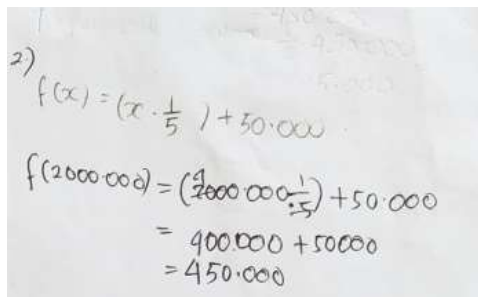 2)
f(x) = (x · 1/5) + 50.000
f(2000.000) = (2000.000 · 1/5) + 50.000
= 400.000 + 50000
= 450.000